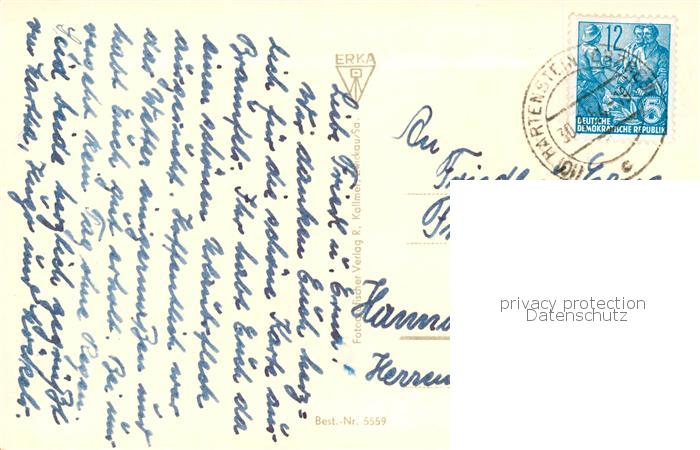 Liebe Friedl u. Erna!
Wir danken Euch herz-
lich für die schöne Karte aus
Ihr habt Euch da
einen schönen Urlaubsfleck
ausgesucht. Hoffentlich war
das Wetter einigermaßen und
habt Euch gut erholt. Bei uns
kein Tag ohne Regen.
Seid beide herzlich gegrüßt
von
ERKA
Fotografischer Verlag R. Kallmer, Zwickau/Sa.
Best.-Nr. 5559
An
Friedl
Hanno
Herren
12
DEUTSCHE
DEMOKRATISCHE REPUBLIK
HARTENSTEIN
30
c
privacy protection
Datenschutz